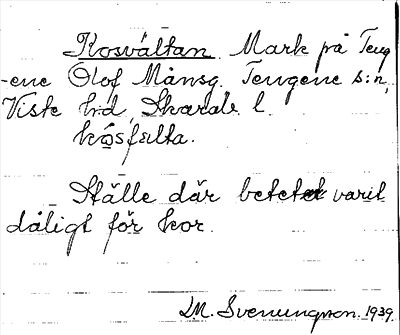 Kosvältan. Mark på Teng
-ene Olof Månsg. Tengene s:n,
Viste hd, Skarab. l.
kósfælta.
Ställe där betet varit
dåligt för kor.
D.M. Svenungsson. 1939.